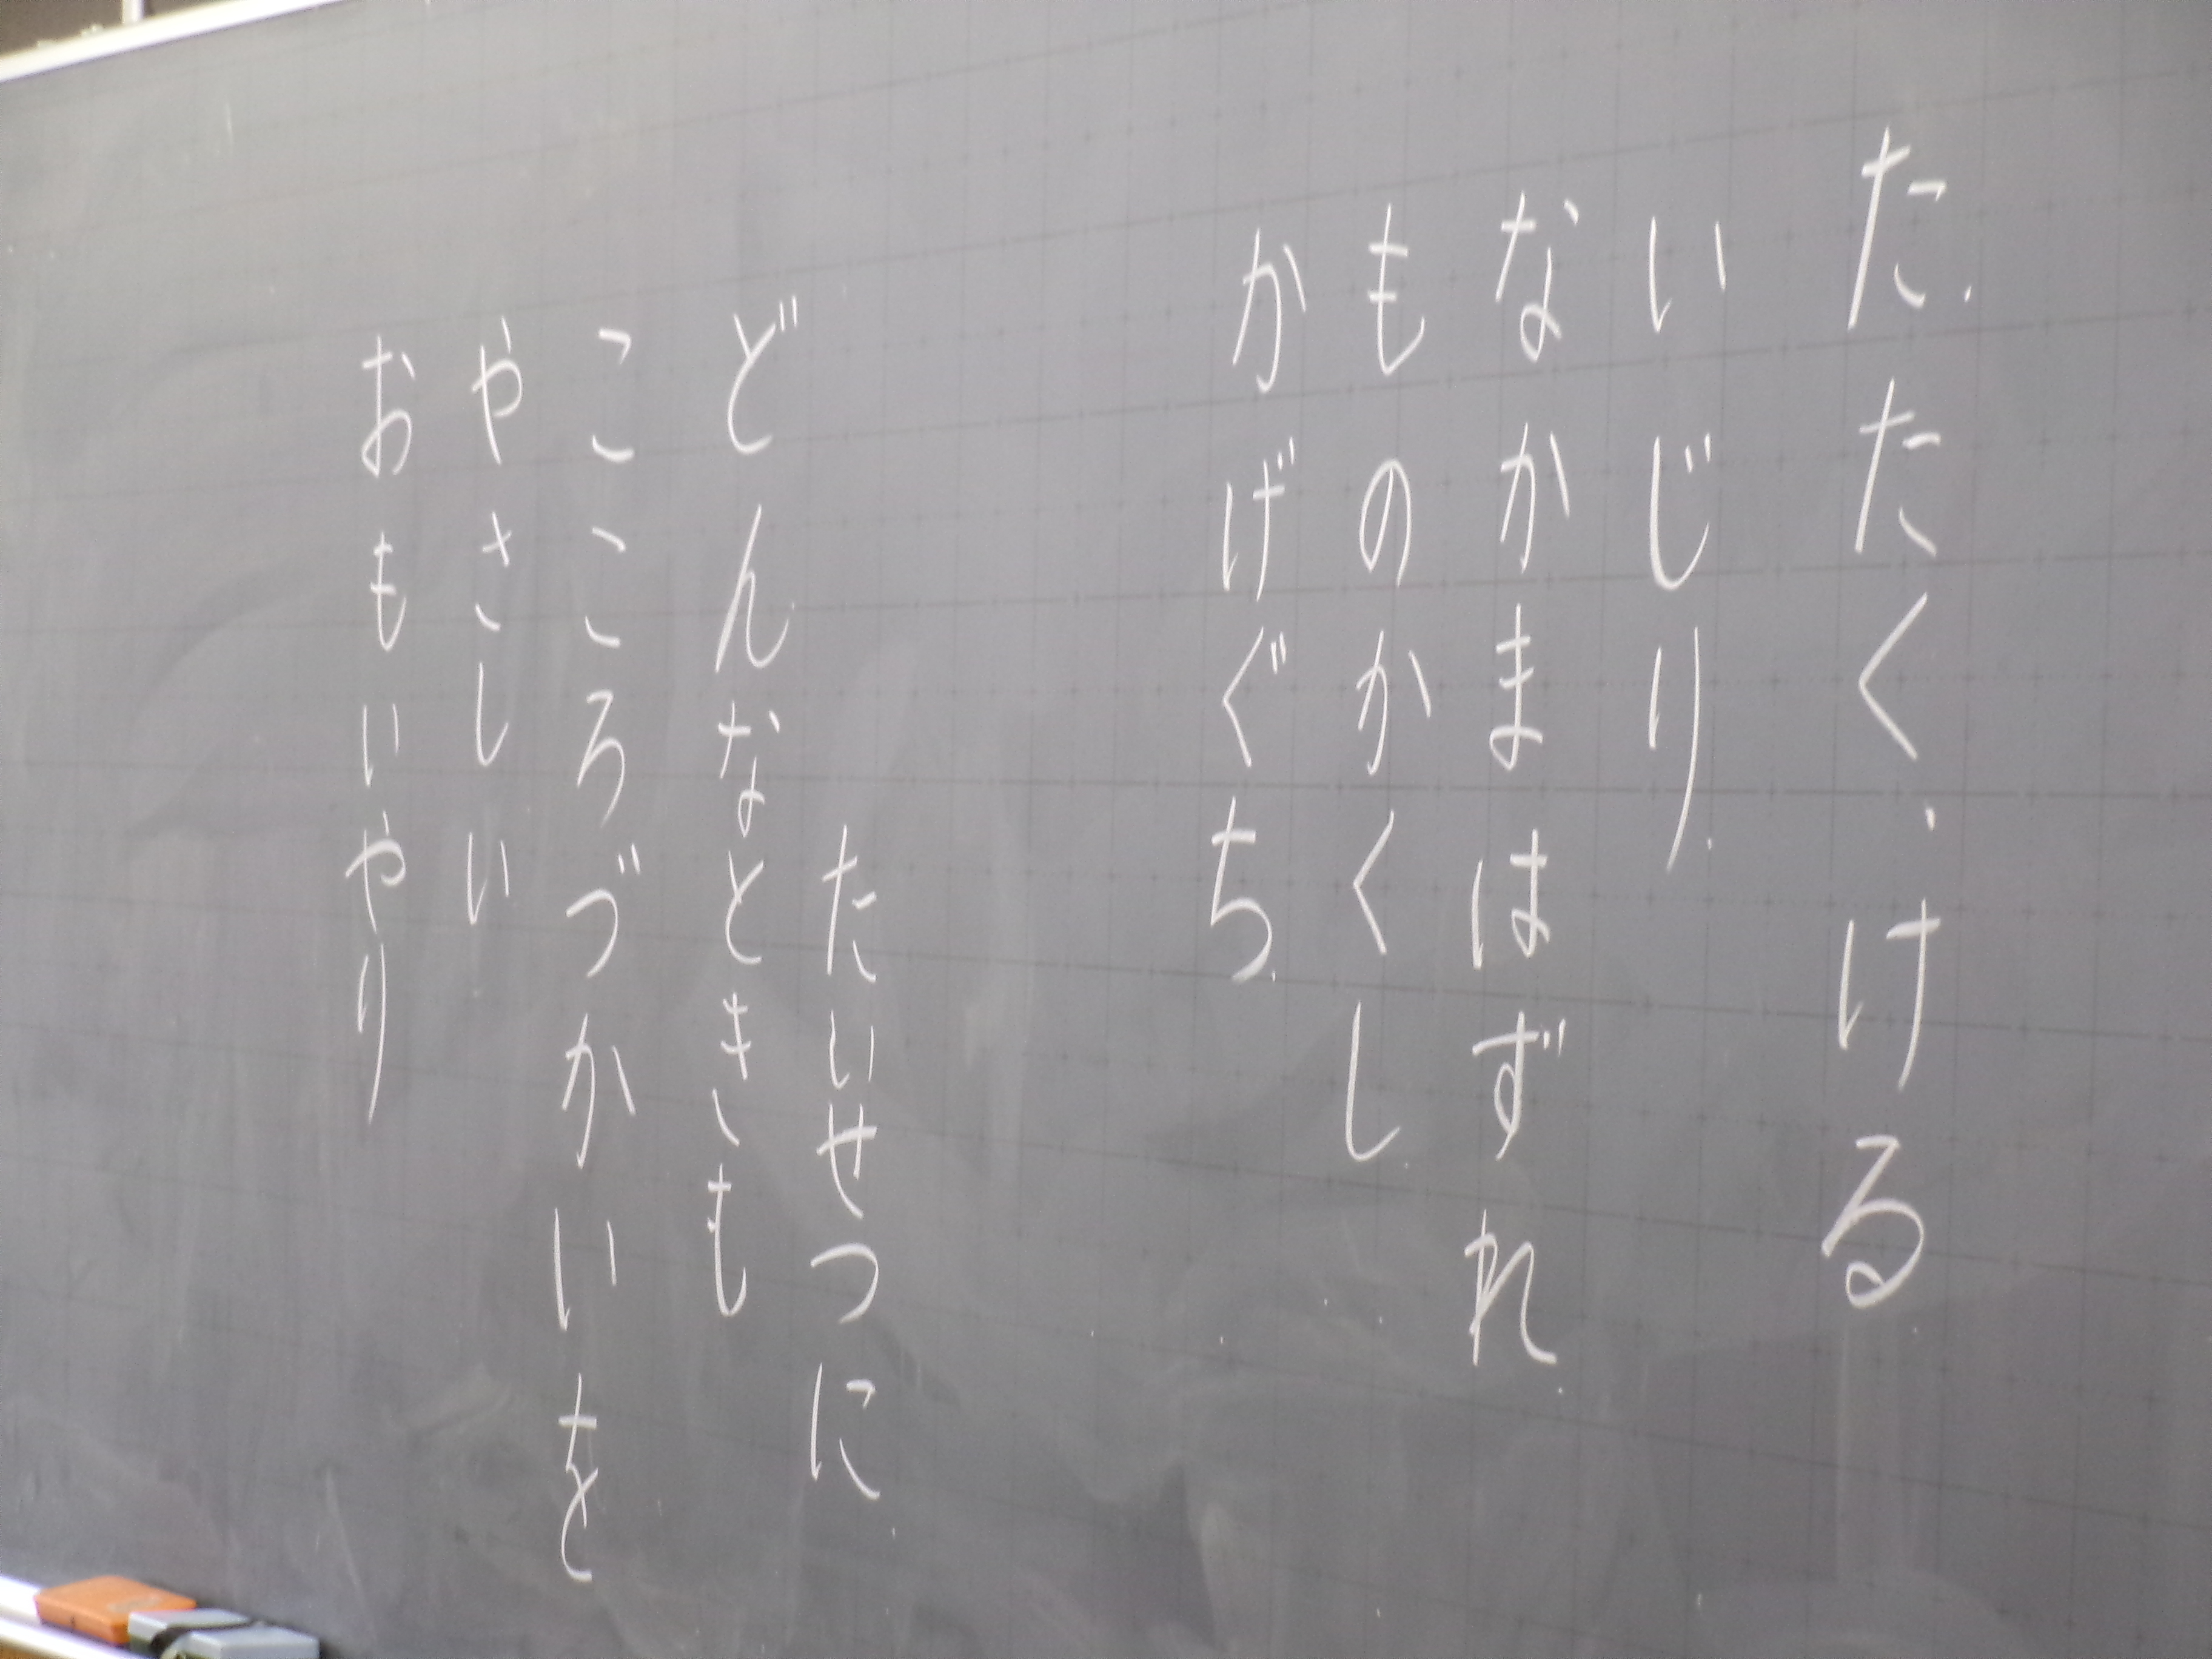 たたく、ける
いじり
なかまはずれ
ものかくし
かげぐち
たいせつに
どんなときも
こころづかいを
やさしい
おもいやり